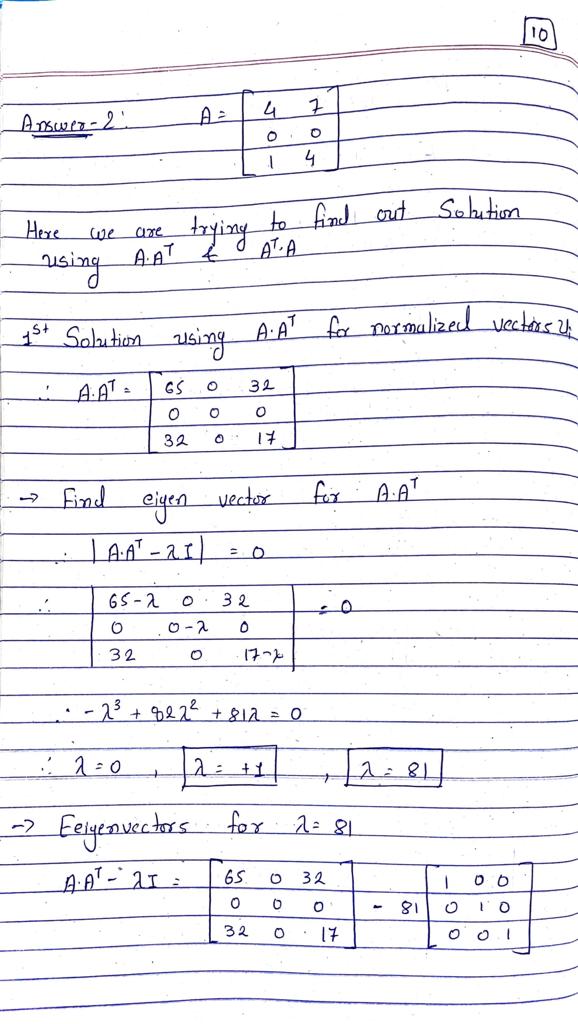 10
Answer-2: A = [ 4 7
0 0
1 4 ]
Here we are trying to find out Solution
using A.Aᵀ & Aᵀ.A
1st Solution using A.Aᵀ for normalized vectors ui
∴ A.Aᵀ = [ 65 0 32
0 0 0
32 0 17 ]
→ Find eigen vector for A.Aᵀ
∴ |A.Aᵀ - λI| = 0
∴ | 65-λ 0 32 | = 0
0 0-λ 0
32 0 17-λ
∴ -λ³ + 82λ² + 81λ = 0
∴ λ=0 , λ = +1 , λ = 81
→ Eeigenvectors for λ= 81
A.Aᵀ - λI = [ 65 0 32 [ 1 0 0
0 0 0 - 81 0 1 0
32 0 17 ] 0 0 1 ]